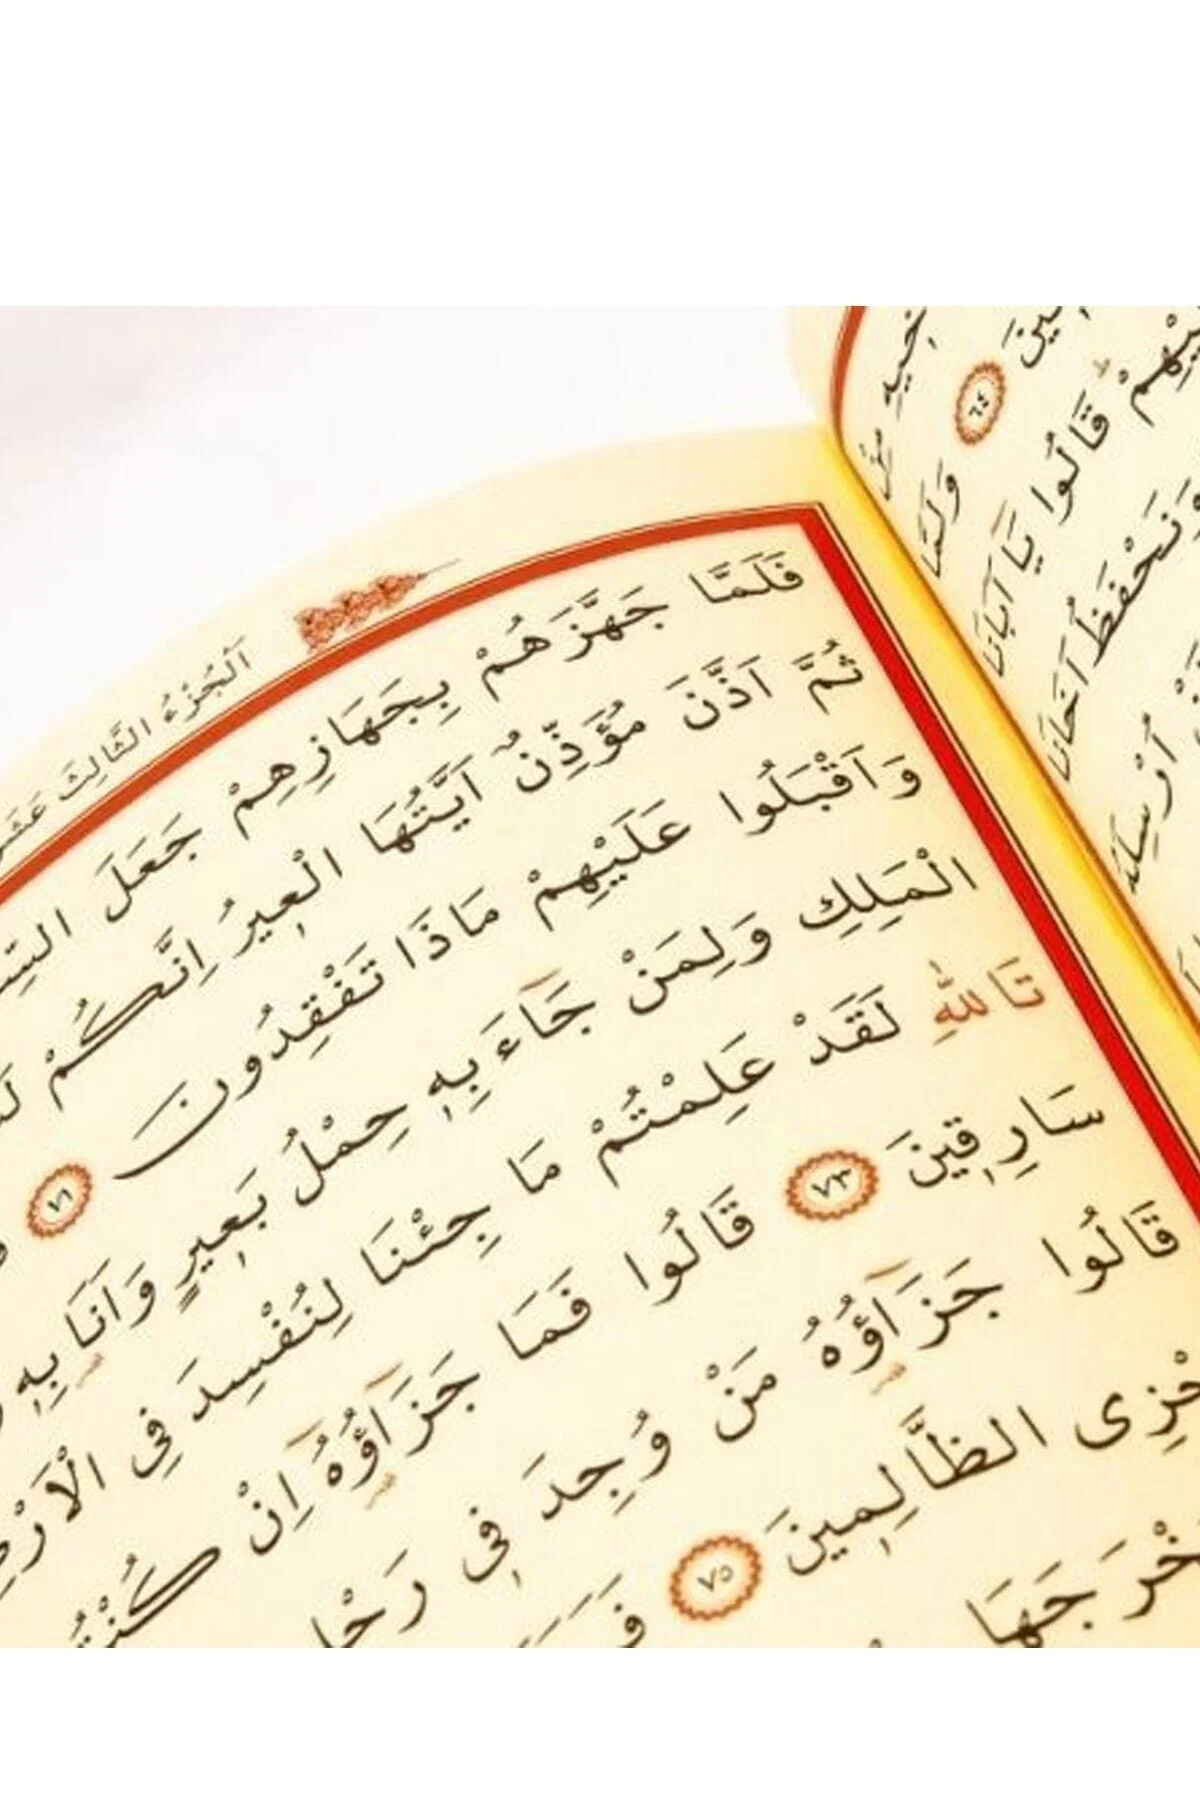 اَلْجُزْءُ الثَّالِثَ عَشَرَ
فَلَمَّا جَهَّزَهُمْ بِجَهَازِهِمْ جَعَلَ
ثُمَّ اَذَّنَ مُؤَذِّنٌ اَيَّتُهَا الْعٖيرُ اِنَّكُمْ
وَاَقْبَلُوا عَلَيْهِمْ مَاذَا تَفْقِدُونَ ﴿٧١﴾
الْمَلِكِ وَلِمَنْ جَاءَ بِهٖ حِمْلُ بَعٖيرٍ وَاَنَا بِهٖ
تَاللّٰهِ لَقَدْ عَلِمْتُمْ مَا جِئْنَا لِنُفْسِدَ فِي الْاَرْضِ
سَارِقٖينَ ﴿٧٣﴾ قَالُوا فَمَا جَزَاؤُهُ اِنْ كُنْتُمْ
قَالُوا جَزَاؤُهُ مَنْ وُجِدَ فٖي رَحْلِ
الظَّالِمٖينَ ﴿٧٥﴾
اَخٖيهِ مِنْ
﴿٦٤﴾ وَلَمَّا
قَالُوا يَا اَبَانَا
وَنَحْفَظُ اَخَانَا
اُرْسِلَهُ